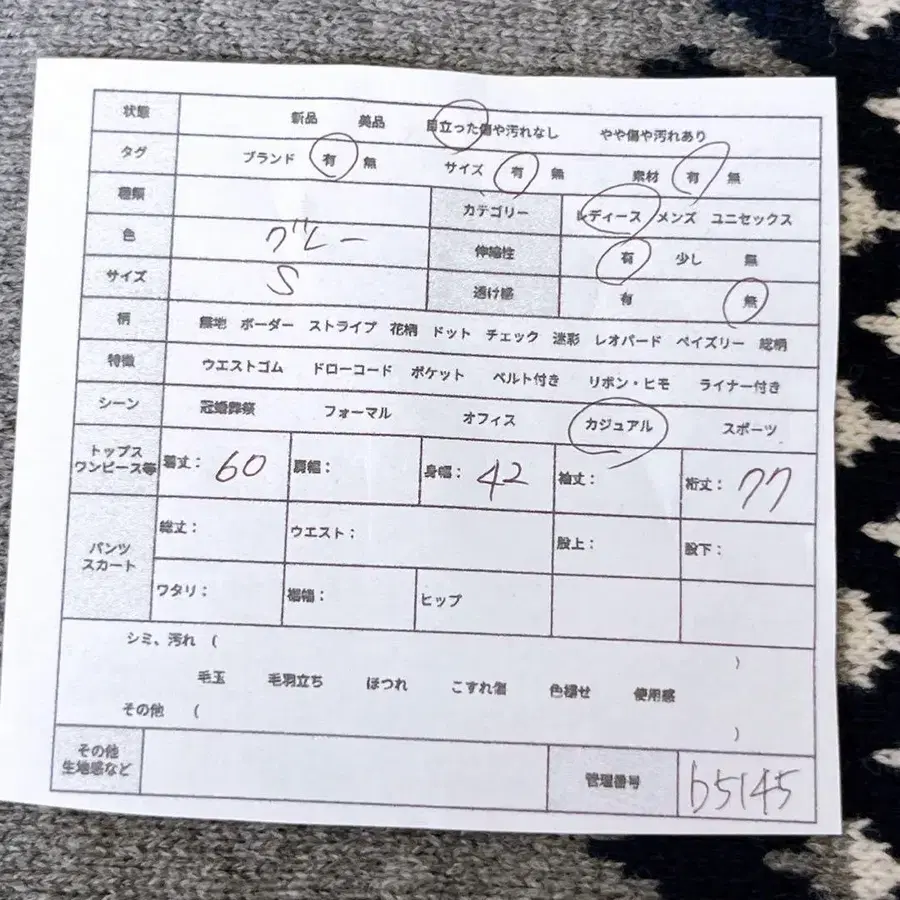 状態 新品 美品 目立った傷や汚れなし やや傷や汚れあり
タグ ブランド 有 無 サイズ 有 無 素材 有 無
種類 カテゴリー レディース メンズ ユニセックス
色 グレー 伸縮性 有 少し 無
サイズ S 透け感 有 無
柄 無地 ボーダー ストライプ 花柄 ドット チェック 迷彩 レオパード ペイズリー 総柄
特徴 ウエストゴム ドローコード ポケット ベルト付き リボン・ヒモ ライナー付き
シーン 冠婚葬祭 フォーマル オフィス カジュアル スポーツ
トップス
ワンピース等 着丈: 60 肩幅: 身幅: 42 袖丈: 裄丈: 77
パンツ
スカート
総丈: ウエスト: 股上: 股下:
ワタリ: 裾幅: ヒップ
シミ、汚れ ( )
毛玉 毛羽立ち ほつれ こすれ傷 色褪せ 使用感
その他 ( )
その他
生地感など 管理番号 b5145